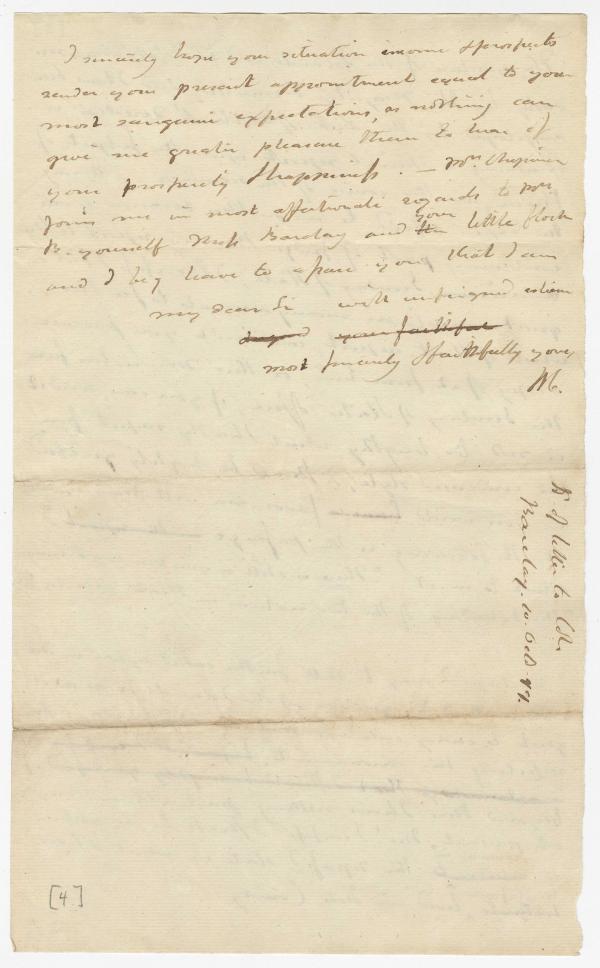 I sincerely hope your situation income & prospects
render your present appointment equal to your
most sanguine expectations, as nothing can
give me greater pleasure than to hear of
your prosperity & happiness. — Mrs. Chipman
joins me in most affectionate regards to Mrs
B. yourself Miss Barclay and the your little flock
and I beg leave to assure you that I am
my dear Sir with unfeigned esteem
your faithful
most sincerely & faithfully yours
WC.
Dt. of letter to Col.
Barclay. 10. Octr. 99.
[4]